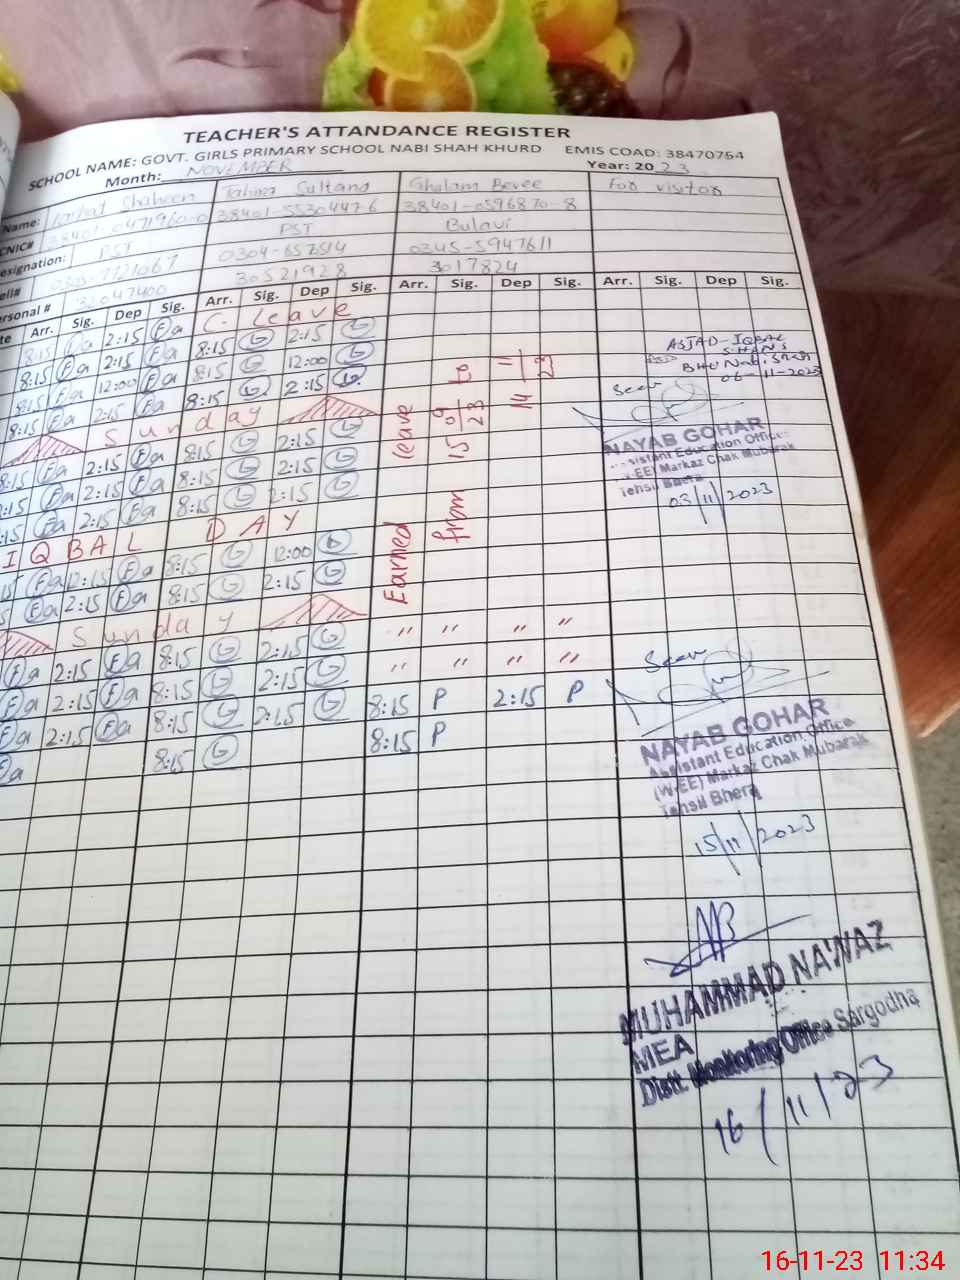 TEACHER'S ATTANDANCE REGISTER
SCHOOL NAME: GOVT. GIRLS PRIMARY SCHOOL NABI SHAH KHURD EMIS COAD: 38470754
Month: NOVEMBER Year: 2023
Name: Shaheen Tahira Sultana Ghulam Bevee For visitor
CNIC# 38401-0471960-0 38401-5530447-6 38401-0596870-8
esignation: PST PST Bulavi
ell# 0304-657514 0345-5947611
ersonal # 32047400 30521928 3017824
te Arr. Sig. Dep Sig. Arr. Sig. Dep Sig. Arr. Sig. Dep Sig. Arr. Sig. Dep Sig.
8:15 Fa 2:15 Fa C. Leave
8:15 Fa 2:15 Fa 8:15 G 2:15 G
8:15 Fa 12:00 Fa 8:15 G 12:00 G
8:15 Fa 2:15 Fa 8:15 G 2:15 G
Sunday
8:15 Fa 2:15 Fa 8:15 G 2:15 G
8:15 Fa 2:15 Fa 8:15 G 2:15 G
:15 Fa 2:15 Fa 8:15 G 2:15 G
IQBAL DAY
15 Fa 12:15 Fa 8:15 G 12:00 G
5 Fa 2:15 Fa 8:15 G 2:15 G
Sunday
Fa 2:15 Fa 8:15 G 2:15 G
Fa 2:15 Fa 8:15 G 2:15 G
Fa 2:15 Fa 8:15 G 2:15 G
Fa 8:15 G
Earned leave
from 15 09/23 to
14 11/23
" " " "
" " " "
8:15 P 2:15 P
8:15 P
ASJAD-IQBAL
SHANS
BHU Nabi Shah
06-11-2023
Seen
NAYAB GOHAR
Assistant Education Officer
(W-EE) Markaz Chak Mubarak
Tehsil Bhera
03/11/2023
Seen
NAYAB GOHAR
Assistant Education Office
(W-EE) Markaz Chak Mubarak
Tehsil Bhera
15/11/2023
MUHAMMAD NAWAZ
MEA
Distt. Monitoring Office Sargodha
16/11/23
16-11-23 11:34